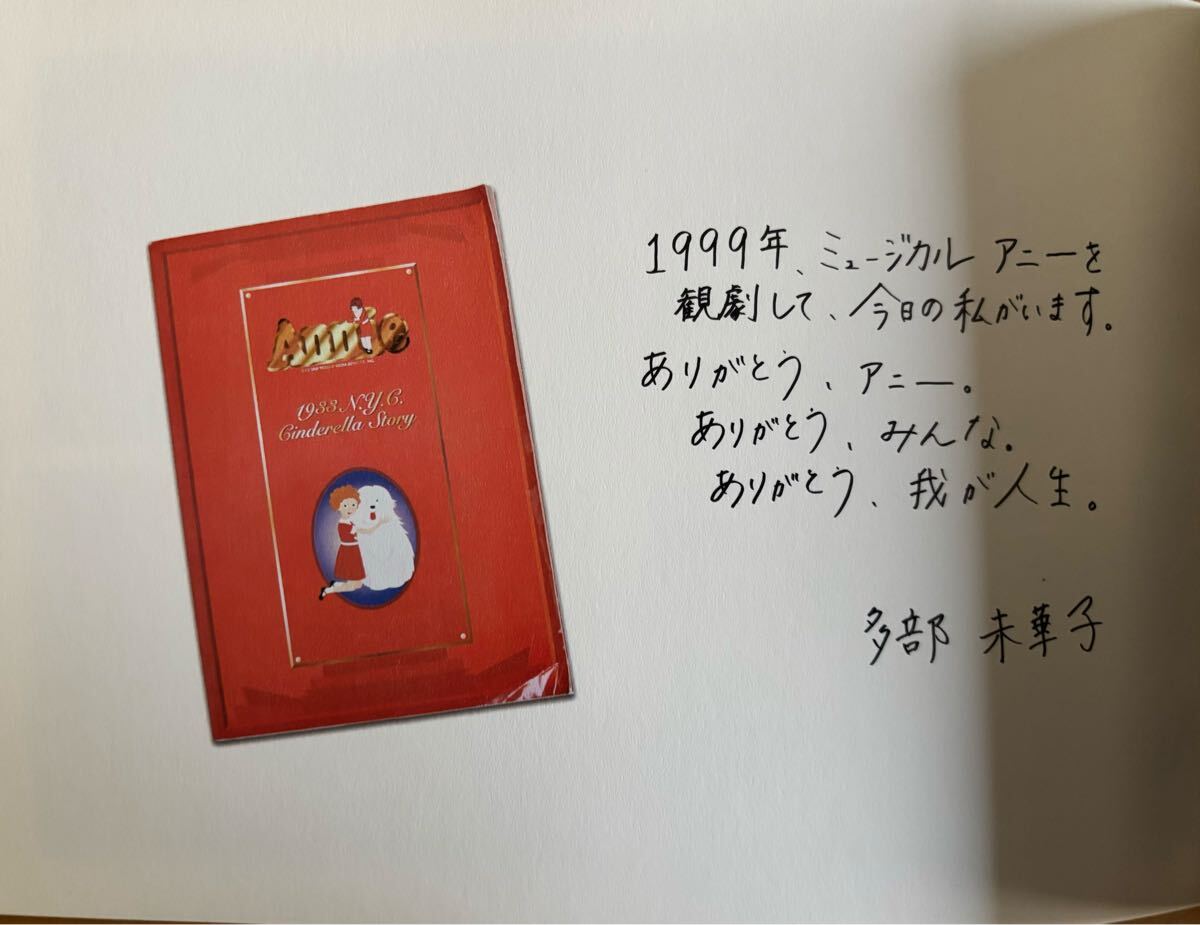 Annie
1933 N.Y.C.
Cinderella Story
1999年、ミュージカル アニーを
観劇して、今日の私がいます。
ありがとう、アニー。
ありがとう、みんな。
ありがとう、我が人生。
多部 未華子